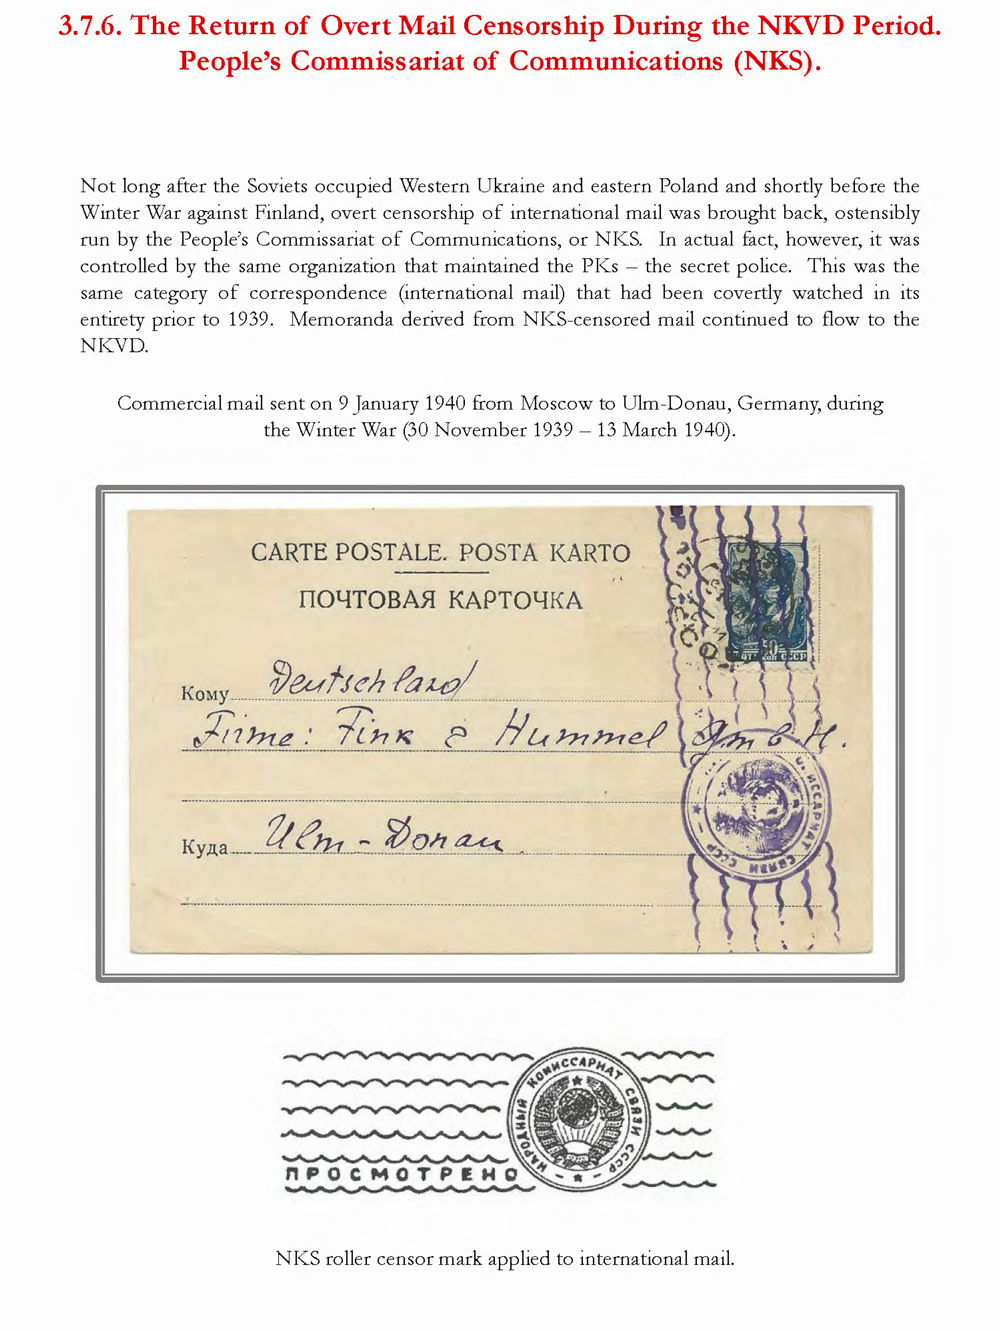 3.7.6. The Return of Overt Mail Censorship During the NKVD Period.
People's Commissariat of Communications (NKS).
Not long after the Soviets occupied Western Ukraine and eastern Poland and shortly before the
Winter War against Finland, overt censorship of international mail was brought back, ostensibly
run by the People's Commissariat of Communications, or NKS. In actual fact, however, it was
controlled by the same organization that maintained the PKs – the secret police. This was the
same category of correspondence (international mail) that had been covertly watched in its
entirety prior to 1939. Memoranda derived from NKS-censored mail continued to flow to the
NKVD.
Commercial mail sent on 9 January 1940 from Moscow to Ulm-Donau, Germany, during
the Winter War (30 November 1939 – 13 March 1940).
CARTE POSTALE. POSTA KARTO
ПОЧТОВАЯ КАРТОЧКА
Кому Deutschland
Firme: Fink & Hummel GmbH.
Куда Ulm-Donau
СВЯЗИ СССР
НАРОДНЫЙ КОМИССАРИАТ СВЯЗИ СССР
ПРОСМОТРЕНО
NKS roller censor mark applied to international mail.